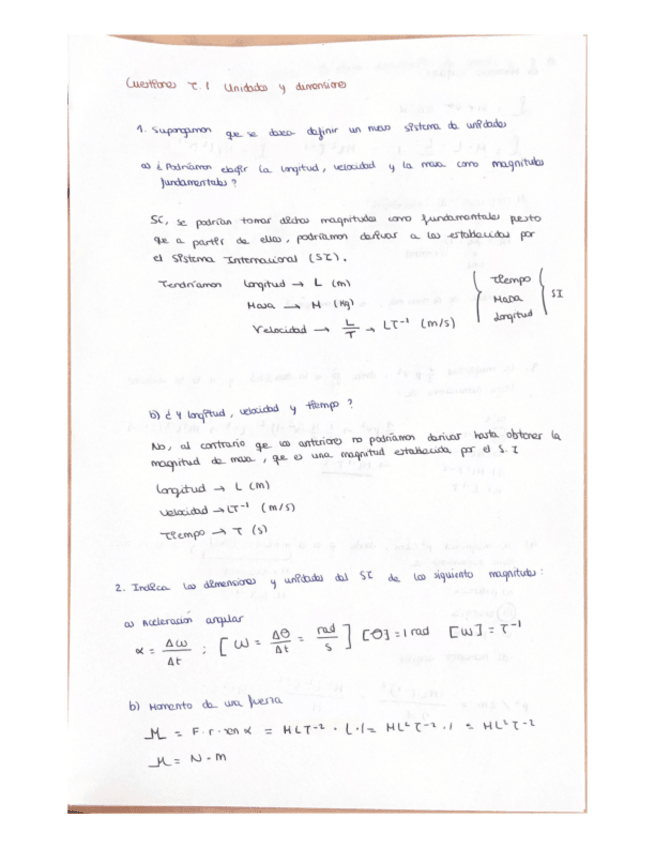 Cuestiones T.1 Unidades y dimensiones
1. Supongamos que se desea definir un nuevo sistema de unidades
a) ¿Podríamos elegir la longitud, velocidad y la masa como magnitudes
fundamentales?
Sí, se podrían tomar dichas magnitudes como fundamentales puesto
que a partir de ellas, podríamos derivar a las establecidas por
el Sistema Internacional (SI).
Tendríamos longitud → L (m)
Masa → M (Kg)
Velocidad → L/T → LT⁻¹ (m/s)
Tiempo
Masa
Longitud
SI
b) ¿Y longitud, velocidad y tiempo?
No, al contrario que las anteriores no podríamos derivar hasta obtener la
magnitud de masa, que es una magnitud establecida por el S.I
Longitud → L (m)
Velocidad → LT⁻¹ (m/s)
Tiempo → T (s)
2. Indica las dimensiones y unidades del SI de las siguientes magnitudes:
a) Aceleración angular
α = Δω/Δt ; [ω = Δθ/Δt = rad/s] [θ] = 1 rad [ω] = T⁻¹
b) Momento de una fuerza
M = F · r · sen α = MLT⁻² · L · 1 = ML²T⁻² · 1 = ML²T⁻²
M = N · m